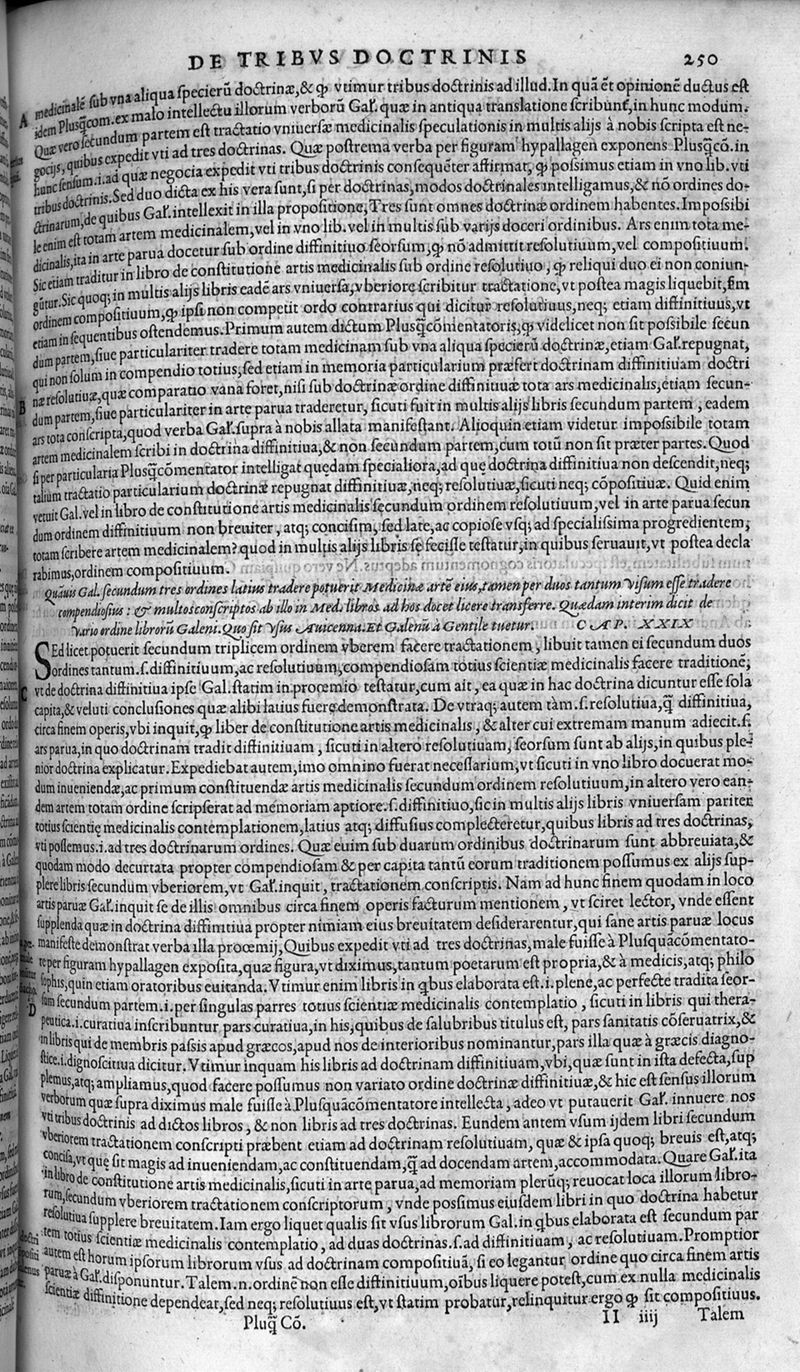 DE TRIBVS DOCTRINIS 250
medicinalẽ sub vna aliqua specierũ doctrinæ, & ꝙ vtimur tribus doctrinis ad illud. In quã ẽt opinionẽ ductus est
A idem Plusq̃com. ex malo intellectu illorum verborũ Gal'. quæ in antiqua translatione scribunt̃, in hunc modum.
Quæ vero secundum partem est tractatio vniuersæ medicinalis speculationis in multis alijs à nobis scripta est ne-
gocijs, quibus expedit vti ad tres doctrinas. Quæ postrema verba per figuram hypallagen exponens Plusq̃cõ. in
hunc sensum .i. ad quæ negocia expedit vti tribus doctrinis consequẽter affirmat, ꝙ possimus etiam in vno lib. vti
tribus doctrinis. Sed duo dicta ex his vera sunt, si per doctrinas, modos doctrinales intelligamus, & nõ ordines do-
ctrinarum, de quibus Gal'. intellexit in illa propositione, Tres sunt omnes doctrinæ ordinem habentes. Impossibi
le enim est totam artem medicinalem, vel in vno lib. vel in multis sub varijs doceri ordinibus. Ars enim tota me-
dicinalis, ita in arte parua docetur sub ordine diffinitiuo seorsum, ꝙ nõ admittit resolutiuum, vel compositiuum.
Sic etiam traditur in libro de constitutione artis medicinalis sub ordine resolutiuo, ꝙ reliqui duo ei non coniun-
gũtur. Sic quoq; in multis alijs libris eadẽ ars vniuersa, vberiore scribitur tractatione, vt postea magis liquebit, s̃m
ordinem compositiuum, ꝙ ipsi non competit ordo contrarius qui dicitur resolutiuus, neq; etiam diffinitiuus, vt
etiam in sequentibus ostendemus. Primum autem dictum Plusq̃cõmentatoris, ꝙ videlicet non sit possibile secun
dum partem, siue particulariter tradere totam medicinam sub vna aliqua specierũ doctrinæ, etiam Gal'. repugnat,
qui non solum in compendio totius, sed etiam in memoria particularium præfert doctrinam diffinitiuam doctri
næ resolutiuæ, quæ comparatio vana foret, nisi sub doctrinæ ordine diffinitiuæ tota ars medicinalis, etiam secun-
B dum partem, siue particulariter in arte parua traderetur, sicuti fuit in multis alijs libris secundum partem, eadem
ars tota conscripta, quod verba Gal'. supra à nobis allata manifestant. Alioquin etiam videtur impossibile totam
artem medicinalem scribi in doctrina diffinitiua, & non secundum partem, cum totũ non sit præter partes. Quod
si per particularia Plusq̃cõmentator intelligat quędam specialiora, ad quę doctrina diffinitiua non descendit, neq;
talium tractatio particularium doctrinæ repugnat diffinitiuæ, neq; resolutiuæ, sicuti neq; cõpositiuæ. Quid enim
vetuit Gal. vel in libro de constitutione artis medicinalis secundum ordinem resolutiuum, vel in arte parua secun
dum ordinem diffinitiuum non breuiter, atq; concisim, sed late, ac copiose vsq; ad specialissima progredientem,
totam scribere artem medicinalem? quod in multis alijs libris se fecisse testatur, in quibus seruauit, vt postea decla
rabimus, ordinem compositiuum.
Quãuis Gal. secundum tres ordines latius tradere potuerit Medicinæ artẽ eius, tamen per duos tantum visum esse tradere
compendiosius: & multos conscriptos ab illo in Med. libros ad hos docet licere transferre. Quædam interim dicit de
vario ordine librorũ Galeni. Quo sit vsus Auicenna. Et Galenũ à Gentile tuetur. CAP. XXIX
SEd licet potuerit secundum triplicem ordinem vberem facere tractationem, libuit tamen ei secundum duos
ordines tantum .s. diffinitiuum, ac resolutiuum, compendiosam totius scientiæ medicinalis facere traditionẽ,
vt de doctrina diffinitiua ipse Gal. statim in proœmio testatur, cum ait, ea quæ in hac doctrina dicuntur esse sola
C capita, & veluti conclusiones quæ alibi latius fuere demonstrata. De vtraq; autem tàm .s. resolutiua, q̃ diffinitiua,
circa finem operis, vbi inquit, ꝙ liber de constitutione artis medicinalis, & alter cui extremam manum adiecit .s.
ars parua, in quo doctrinam tradit diffinitiuam, sicuti in altero resolutiuam, seorsum sunt ab alijs, in quibus ple-
nior doctrina explicatur. Expediebat autem, imo omnino fuerat necessarium, vt sicuti in vno libro docuerat mo-
dum inueniendæ, ac primum constituendæ artis medicinalis secundum ordinem resolutiuum, in altero vero ean-
dem artem totam ordine scripserat ad memoriam aptiore .s. diffinitiuo, sic in multis alijs libris vniuersam pariter
totius scientię medicinalis contemplationem, latius atq; diffusius complecteretur, quibus libris ad tres doctrinas,
vti possemus .i. ad tres doctrinarum ordines. Quæ euim sub duarum ordinibus doctrinarum sunt abbreuiata, &
quodam modo decurtata propter compendiosam & per capita tantũ eorum traditionem possumus ex alijs sup-
plere libris secundum vberiorem, vt Gal'. inquit, tractationem conscriptis. Nam ad hunc finem quodam in loco
artis paruæ Gal'. inquit se de illis omnibus circa finem operis facturum mentionem, vt sciret lector, vnde essent
supplenda quæ in doctrina diffinitiua propter nimiam eius breuitatem desiderarentur, qui sane artis paruæ locus
manifeste demonstrat verba illa procemij, Quibus expedit vti ad tres doctrinas, male fuisse à Plusquàcõmentato-
re per figuram hypallagen exposita, quæ figura, vt diximus, tantum poetarum est propria, & à medicis, atq; philo
sophis, quin etiam oratoribus euitanda. Vtimur enim libris in q̃bus elaborata est .i. plene, ac perfecte tradita seor-
D sum secundum partem .i. per singulas parres totius scientiæ medicinalis contemplatio, sicuti in libris qui thera-
peutica .i. curatiua inscribuntur pars curatiua, in his, quibus de salubribus titulus est, pars sanitatis cõseruatrix, &
in libris qui de membris passis apud græcos, apud nos de interioribus nominantur, pars illa quæ à græcis diagno-
stice .i. dignoscitiua dicitur. Vtimur inquam his libris ad doctrinam diffinitiuam, vbi, quæ sunt in ista defecta, sup
plemus, atq; ampliamus, quod facere possumus non variato ordine doctrinæ diffinitiuæ, & hic est sensus illorum
verborum quæ supra diximus male fuisse à Plusquàcõmentatore intellecta, adeo vt putauerit Gal'. innuere nos
vti tribus doctrinis ad dictos libros, & non libris ad tres doctrinas. Eundem antem vsum ijdem libri secundum
vberiorem tractationem conscripti præbent etiam ad doctrinam resolutiuam, quæ & ipsa quoq; breuis est, atq;
concisa, vt quę sit magis ad inueniendam, ac constituendam, q̃ ad docendam artem, accommodata. Quare Gal'. ita
in libro de constitutione artis medicinalis, sicuti in arte parua, ad memoriam plerũq; reuocat loca illorum libro-
rum, secundum vberiorem tractationem conscriptorum, vnde possimus eiusdem libri in quo doctrina habetur
resolutiua supplere breuitatem. Iam ergo liquet qualis sit vsus librorum Gal. in q̃bus elaborata est secundum par
tem totius scientiæ medicinalis contemplatio, ad duas doctrinas .s. ad diffinitiuam, ac resolutiuam. Promptior
autem est horum ipsorum librorum vsus ad doctrinam compositiuã, si eo legantur ordine quo circa finem artis
paruæ à Gal'. disponuntur. Talem .n. ordinẽ non esse diffinitiuum, oĩbus liquere potest, cum ex nulla medicinalis
scientiæ diffinitione dependear, sed neq; resolutiuus est, vt statim probatur, relinquitur ergo ꝙ sit compositiuus.
Pluq̃ Cõ. II iiij Talem